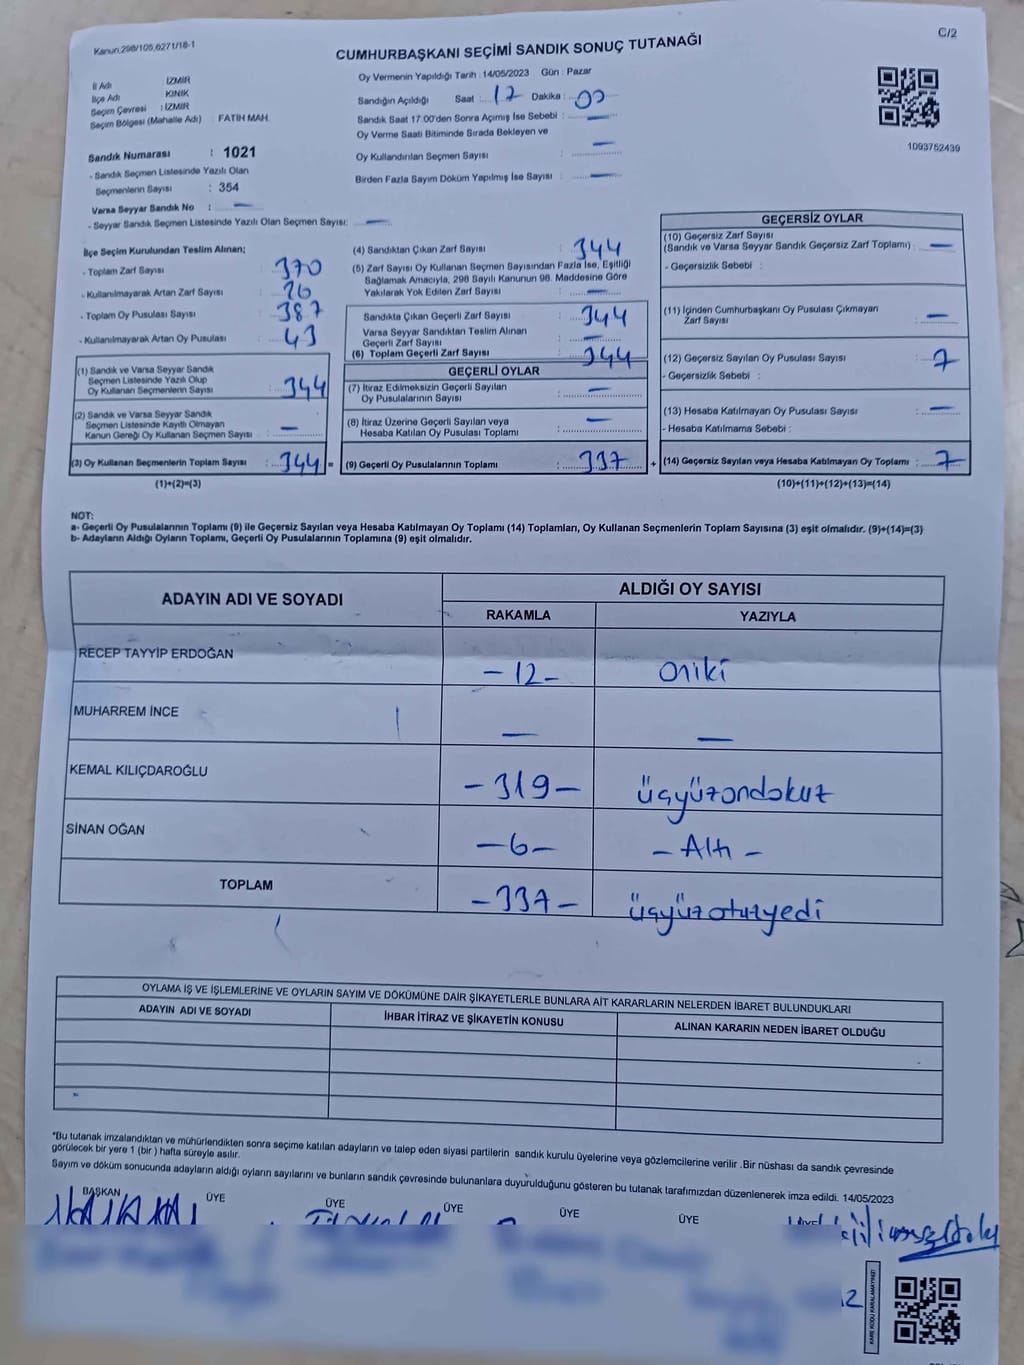 Kanun,298/105,6271/18-1
C/2
CUMHURBAŞKANI SEÇİMİ SANDIK SONUÇ TUTANAĞI
İl Adı İZMİR
İlçe Adı KINIK
Seçim Çevresi : İZMİR
Seçim Bölgesi (Mahalle Adı) : FATİH MAH.
Sandık Numarası : 1021
- Sandık Seçmen Listesinde Yazılı Olan
Seçmenlerin Sayısı : 354
Varsa Seyyar Sandık No : —
- Seyyar Sandık Seçmen Listesinde Yazılı Olan Seçmen Sayısı: —
Oy Vermenin Yapıldığı Tarih : 14/05/2023 Gün : Pazar
Sandığın Açıldığı Saat : 17 Dakika : 00
Sandık Saat 17.00'den Sonra Açımış İse Sebebi : —
Oy Verme Saati Bitiminde Sırada Bekleyen ve
Oy Kullandırılan Seçmen Sayısı : —
Birden Fazla Sayım Döküm Yapılmış İse Sayısı : —
1093752439
İlçe Seçim Kurulundan Teslim Alınan;
- Toplam Zarf Sayısı : 370
- Kullanılmayarak Artan Zarf Sayısı : 26
- Toplam Oy Pusulası Sayısı : 387
- Kullanılmayarak Artan Oy Pusulası : 43
(1) Sandık ve Varsa Seyyar Sandık
Seçmen Listesinde Yazılı Olup
Oy Kullanan Seçmenlerin Sayısı : 344
(2) Sandık ve Varsa Seyyar Sandık
Seçmen Listesinde Kayıtlı Olmayan
Kanun Gereği Oy Kullanan Seçmen Sayısı : —
(3) Oy Kullanan Seçmenlerin Toplam Sayısı : 344 =
(1)+(2)=(3)
(4) Sandıktan Çıkan Zarf Sayısı : 344
(5) Zarf Sayısı Oy Kullanan Seçmen Sayısından Fazla İse, Eşitliği
Sağlamak Amacıyla, 298 Sayılı Kanunun 98. Maddesine Göre
Yakılarak Yok Edilen Zarf Sayısı : —
Sandıkta Çıkan Geçerli Zarf Sayısı : 344
Varsa Seyyar Sandıktan Teslim Alınan
Geçerli Zarf Sayısı : —
(6) Toplam Geçerli Zarf Sayısı : 344
GEÇERLİ OYLAR
(7) İtiraz Edilmeksizin Geçerli Sayılan
Oy Pusulalarının Sayısı : —
(8) İtiraz Üzerine Geçerli Sayılan veya
Hesaba Katılan Oy Pusulası Toplamı : —
(9) Geçerli Oy Pusulalarının Toplamı : 337 +
GEÇERSİZ OYLAR
(10) Geçersiz Zarf Sayısı
(Sandık ve Varsa Seyyar Sandık Geçersiz Zarf Toplamı) : —
- Geçersizlik Sebebi :
(11) İçinden Cumhurbaşkanı Oy Pusulası Çıkmayan
Zarf Sayısı : —
(12) Geçersiz Sayılan Oy Pusulası Sayısı : 7
- Geçersizlik Sebebi :
(13) Hesaba Katılmayan Oy Pusulası Sayısı : —
- Hesaba Katılmama Sebebi :
(14) Geçersiz Sayılan veya Hesaba Katılmayan Oy Toplamı : 7
(10)+(11)+(12)+(13)=(14)
NOT:
a- Geçerli Oy Pusulalarının Toplamı (9) ile Geçersiz Sayılan veya Hesaba Katılmayan Oy Toplamı (14) Toplamları, Oy Kullanan Seçmenlerin Toplam Sayısına (3) eşit olmalıdır. (9)+(14)=(3)
b- Adayların Aldığı Oyların Toplamı, Geçerli Oy Pusulalarının Toplamına (9) eşit olmalıdır.
ADAYIN ADI VE SOYADI
ALDIĞI OY SAYISI
RAKAMLA YAZIYLA
RECEP TAYYİP ERDOĞAN – 12 – Oniki
MUHARREM İNCE — —
KEMAL KILIÇDAROĞLU – 319 – üçyüzondokuz
SİNAN OĞAN – 6 – – Altı –
TOPLAM – 337 – üçyüzotuzyedi
OYLAMA İŞ VE İŞLEMLERİNE VE OYLARIN SAYIM VE DÖKÜMÜNE DAİR ŞİKAYETLERLE BUNLARA AİT KARARLARIN NELERDEN İBARET BULUNDUKLARI
ADAYIN ADI VE SOYADI İHBAR İTİRAZ VE ŞİKAYETİN KONUSU ALINAN KARARIN NEDEN İBARET OLDUĞU
*Bu tutanak imzalandıktan ve mühürlendikten sonra seçime katılan adayların ve talep eden siyasi partilerin sandık kurulu üyelerine veya gözlemcilerine verilir .Bir nüshası da sandık çevresinde
görülecek bir yere 1 (bir ) hafta süreyle asılır.
Sayım ve döküm sonucunda adayların aldığı oyların sayılarını ve bunların sandık çevresinde bulunanlara duyurulduğunu gösteren bu tutanak tarafımızdan düzenlenerek imza edildi. 14/05/2023
BAŞKAN ÜYE ÜYE ÜYE ÜYE ÜYE ÜYE
KARE KODU KARALAMAYINIZ!